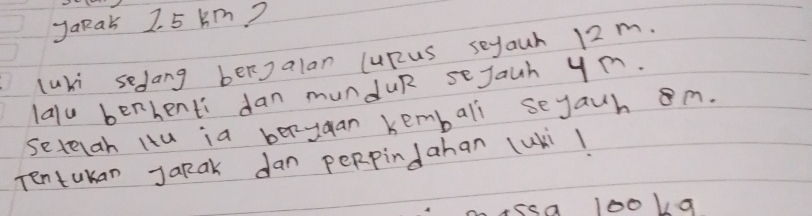 jarak 2.5 km?
luki sedang berjalan lurus sejauh 12 m.
lalu berhenti dan mundur sejauh 4 m.
setelah itu ia beryaan kembali sejauh 8 m.
Tentukan jarak dan perpindahan luki!
massa 100 kg